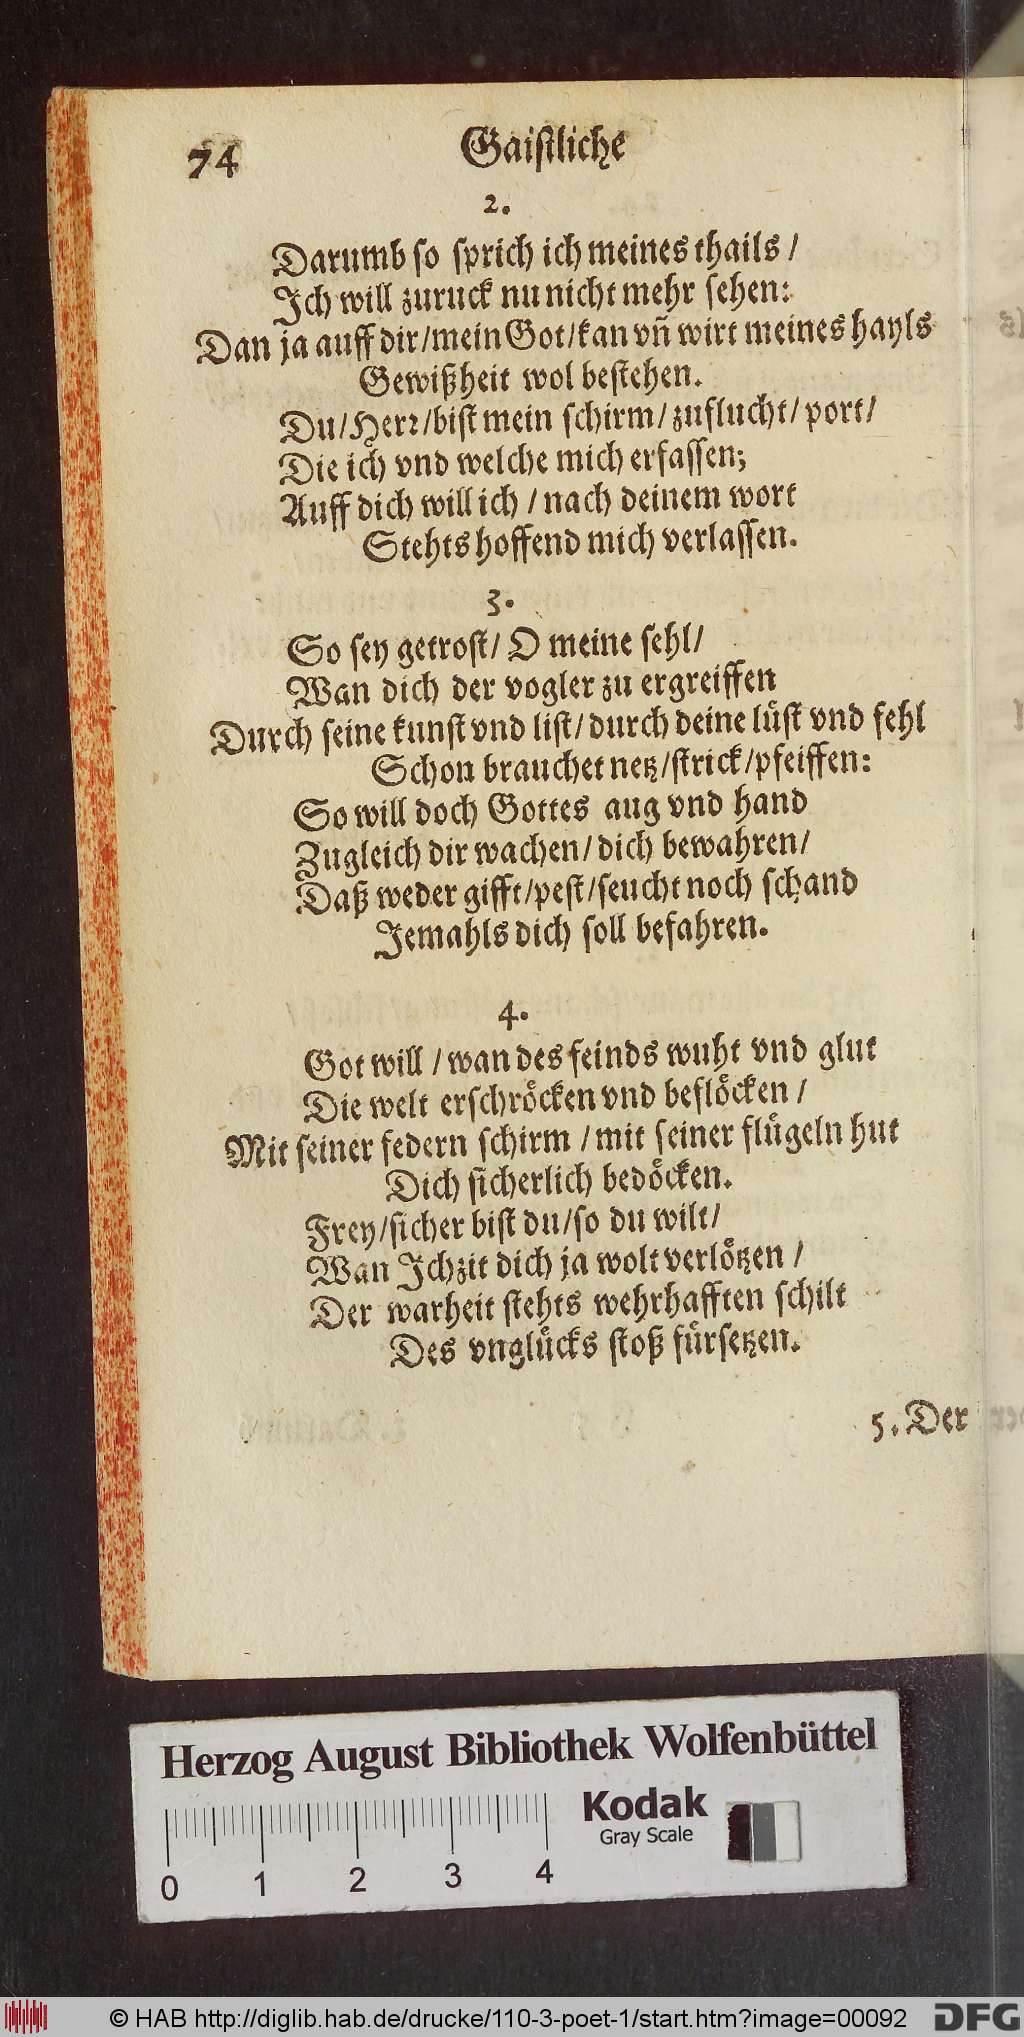 74 Gaistliche
2.
Darumb so sprich ich meines thails /
Ich will zuruck nu nicht mehr sehen:
Dan ja auff dir/mein Got/kan vñ wirt meines hayls
Gewißheit wol bestehen.
Du/Herr/bist mein schirm/zuflucht/port/
Die ich vnd welche mich erfassen;
Auff dich will ich / nach deinem wort
Stehts hoffend mich verlassen.
3.
So sey getrost/ O meine sehl/
Wan dich der vogler zu ergreiffen
Durch seine kunst vnd list/durch deine lüst vnd fehl
Schon brauchet netz/strick/pfeiffen:
So will doch Gottes aug vnd hand
Zugleich dir wachen/dich bewahren/
Daß weder gifft/pest/seucht noch schand
Jemahls dich soll befahren.
4.
Got will / wan des feinds wuht vnd glut
Die welt erschröcken vnd beflöcken /
Mit seiner federn schirm / mit seiner flügeln hut
Dich sicherlich bedöcken.
Frey/sicher bist du/so du wilt/
Wan Ichzit dich ja wolt verlötzen /
Der warheit stehts wehrhafften schilt
Des vnglücks stoß fürsetzen.
5. Der
Herzog August Bibliothek Wolfenbüttel
Kodak
Gray Scale
0 1 2 3 4
© HAB http://diglib.hab.de/drucke/110-3-poet-1/start.htm?image=00092
DFG